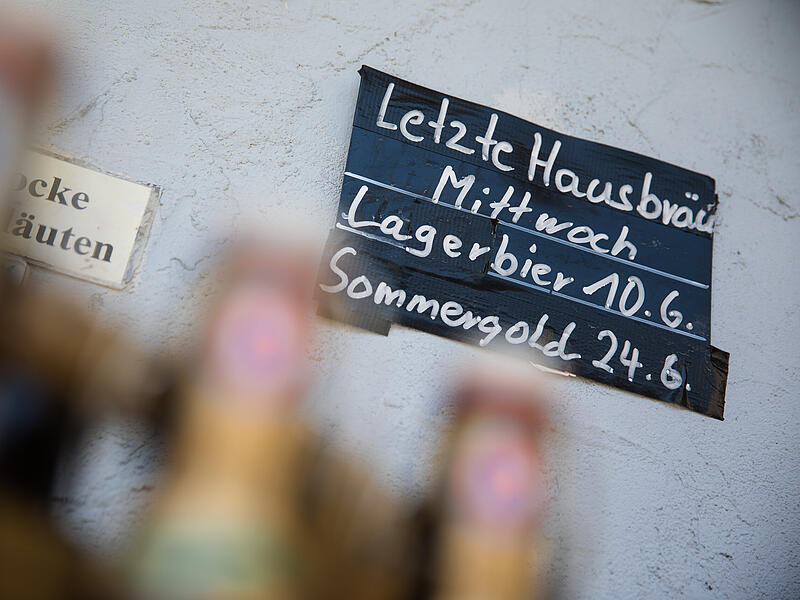 ocke
läuten
Letzte Hausbräu
Mittwoch
Lagerbier 10.6.
Sommergold 24.6.